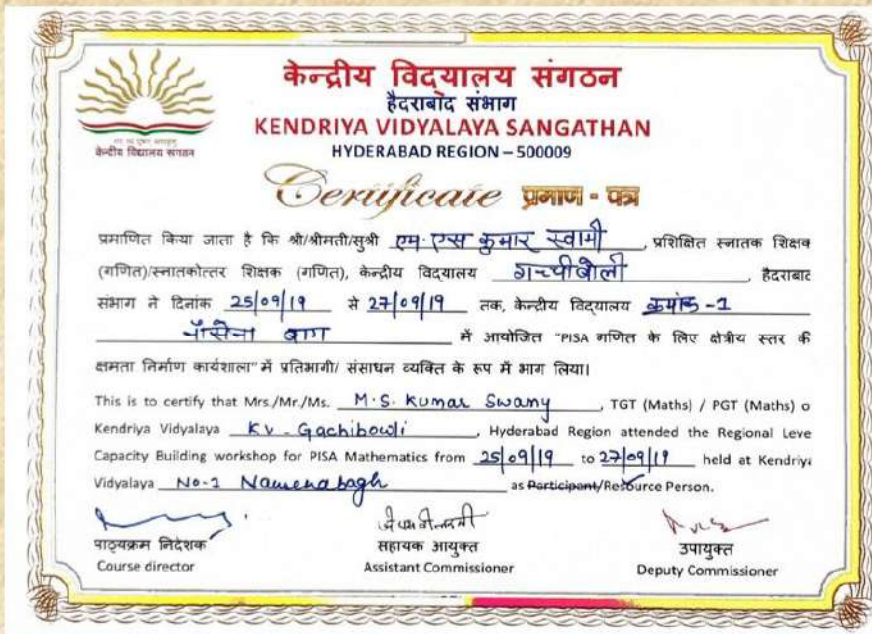 केन्द्रीय विद्यालय संगठन
हैदराबाद संभाग
KENDRIYA VIDYALAYA SANGATHAN
HYDERABAD REGION – 500009
केन्द्रीय विद्यालय संगठन
Certificate प्रमाण - पत्र
प्रमाणित किया जाता है कि श्री/श्रीमती/सुश्री एम॰एस कुमार स्वामी, प्रशिक्षित स्नातक शिक्षक
(गणित)/स्नातकोत्तर शिक्षक (गणित), केन्द्रीय विद्यालय गच्चीबौली, हैदराबाद
संभाग ने दिनांक 25/09/19 से 27/09/19 तक, केन्द्रीय विद्यालय क्रमांक -1
बाग में आयोजित "PISA गणित के लिए क्षेत्रीय स्तर की
क्षमता निर्माण कार्यशाला" में प्रतिभागी/ संसाधन व्यक्ति के रूप में भाग लिया।
This is to certify that Mrs./Mr./Ms. M.S. Kumar Swamy, TGT (Maths) / PGT (Maths) o
Kendriya Vidyalaya KV - Gachibowli, Hyderabad Region attended the Regional Leve
Capacity Building workshop for PISA Mathematics from 25/09/19 to 27/09/19 held at Kendriya
Vidyalaya No-1 as Participant/Resource Person.
पाठ्यक्रम निदेशक
Course director
सहायक आयुक्त
Assistant Commissioner
उपायुक्त
Deputy Commissioner